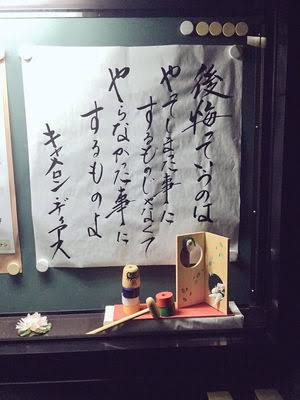 後悔っていうのは
やってしまった事に
するものじゃなくて
やらなかった事に
するものよ
キャメロン・ディアス